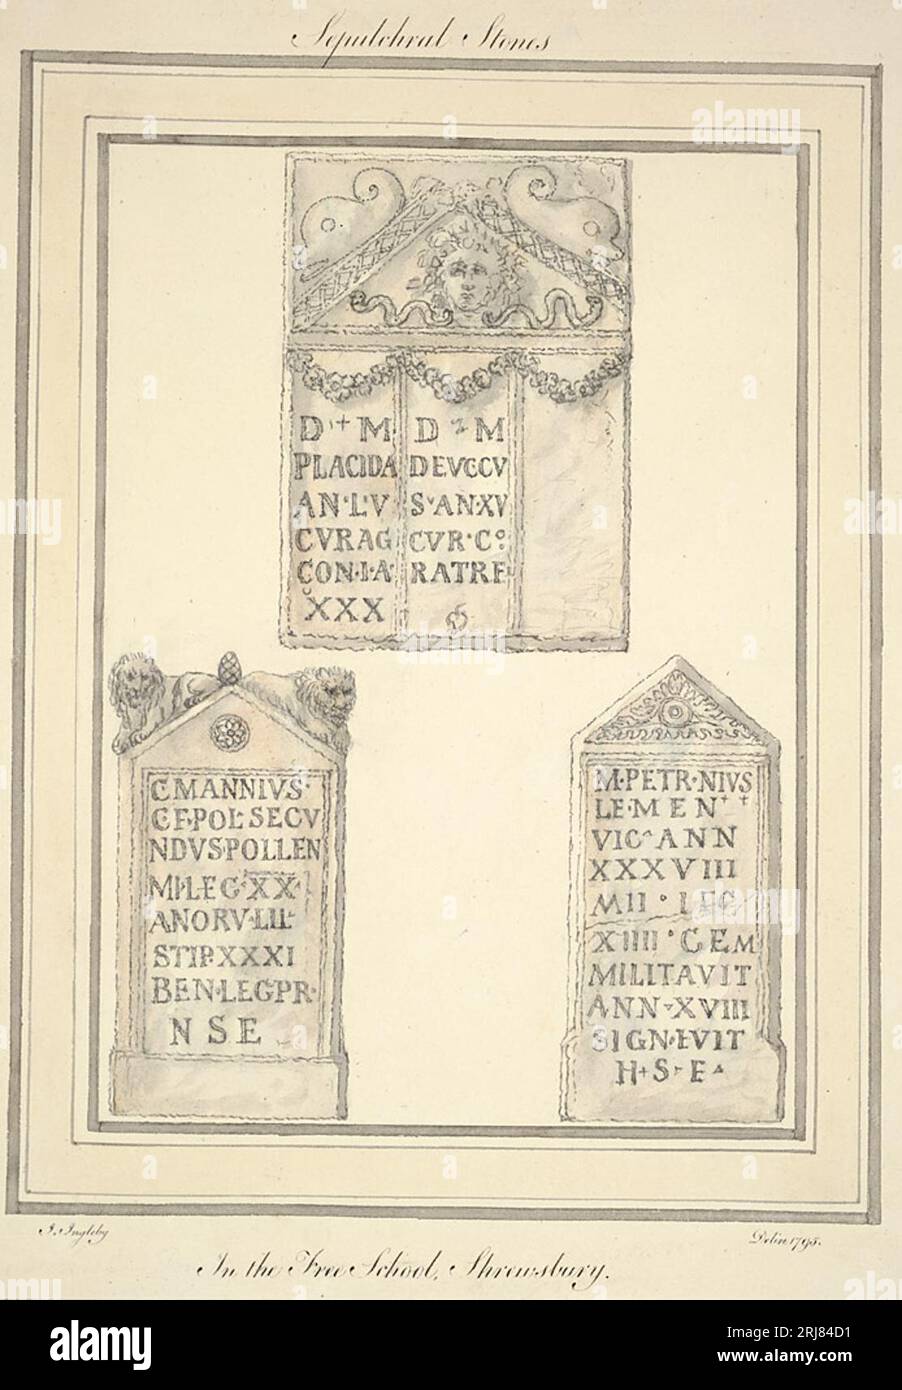 Sepulchral Stones
D + M
PLACIDA
AN·L·V
CVRAG
CON·I·A
XXX
D M
DEVCCV
S·AN·XV
CVR·Co:
RATRE
C·MANNIVS·
C·F·POL·SECV
NDVS·POLLEN
MI·LEG·XX·
ANORV·LII·
STIP·XXXI
BEN·LEG·PR·
N S E
M·PETR·NIVS
LE·MEN++
VIC^ANN
XXXVIII
MII ° LEG
XIIII°GEM
MILITAVIT
ANN·XVIII
SIGN·FVIT
H+S·E^
J. Ingleby
Delin 1795.
In the Free School, Shrewsbury.
alamy
Image ID: 2RJ84D1
www.alamy.com